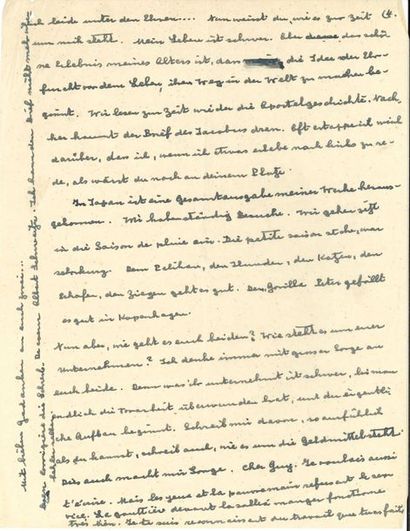 Ich leide unter den Ehren... Nun weisst du, wie es zur Zeit (4.
um mich steht. Mein Leben ist schwer. Aber das schö-
ne Erlebnis meines Alters ist, dass die Idee der Ehr-
furcht vor dem Leben, ihren Weg in der Welt zu machen be-
ginnt. Wir lesen zur Zeit wieder die Apostelgeschichte. Nach-
her kommt der Brief des Jacobus dran. Oft ertappe ich mich
darüber, dass ich, wenn ich etwas erlebe nach links zu re-
de, als wärst du noch an deinem Platze.
In Japan ist eine Gesamtausgabe meiner Werke heraus-
gekommen. Wir haben ständig Besuche. Wir gehen jetzt
in die Saison de pluie ein. Die petite saison sèche, war
schwierig. Dem Pelikan, den Hunden, den Katzen, den
Schafen, den Ziegen geht es gut. Dem Gorilla Peter gefällt
es gut in Kopenhagen.
Nun aber, wie geht es euch beiden? Wie steht es um euer
Unternehmen? Ich denke immer mit grosser Sorge an
euch beide. Denn was ihr unternehmt ist schwer, bis man
endlich die Vorarbeit überwunden hat, und der eigentli-
che Aufbau beginnt. Schreib mir davon, so ausführlich
als du kannst, schreib auch, wie es um die Geldmittel steht.
Dies auch macht mir Sorge. Cher Guy. Je voulais aussi
t'écrire. Mais les yeux et la pauvre main refusent le ser-
vice. La gouttière devant la salle à manger fonctionne
très bien. Je te suis reconnaissant du travail que tu as fait
Mit lieben Gedanken an euch zwei...
Albert Schweitzer. Ich kann den Brief nicht mehr